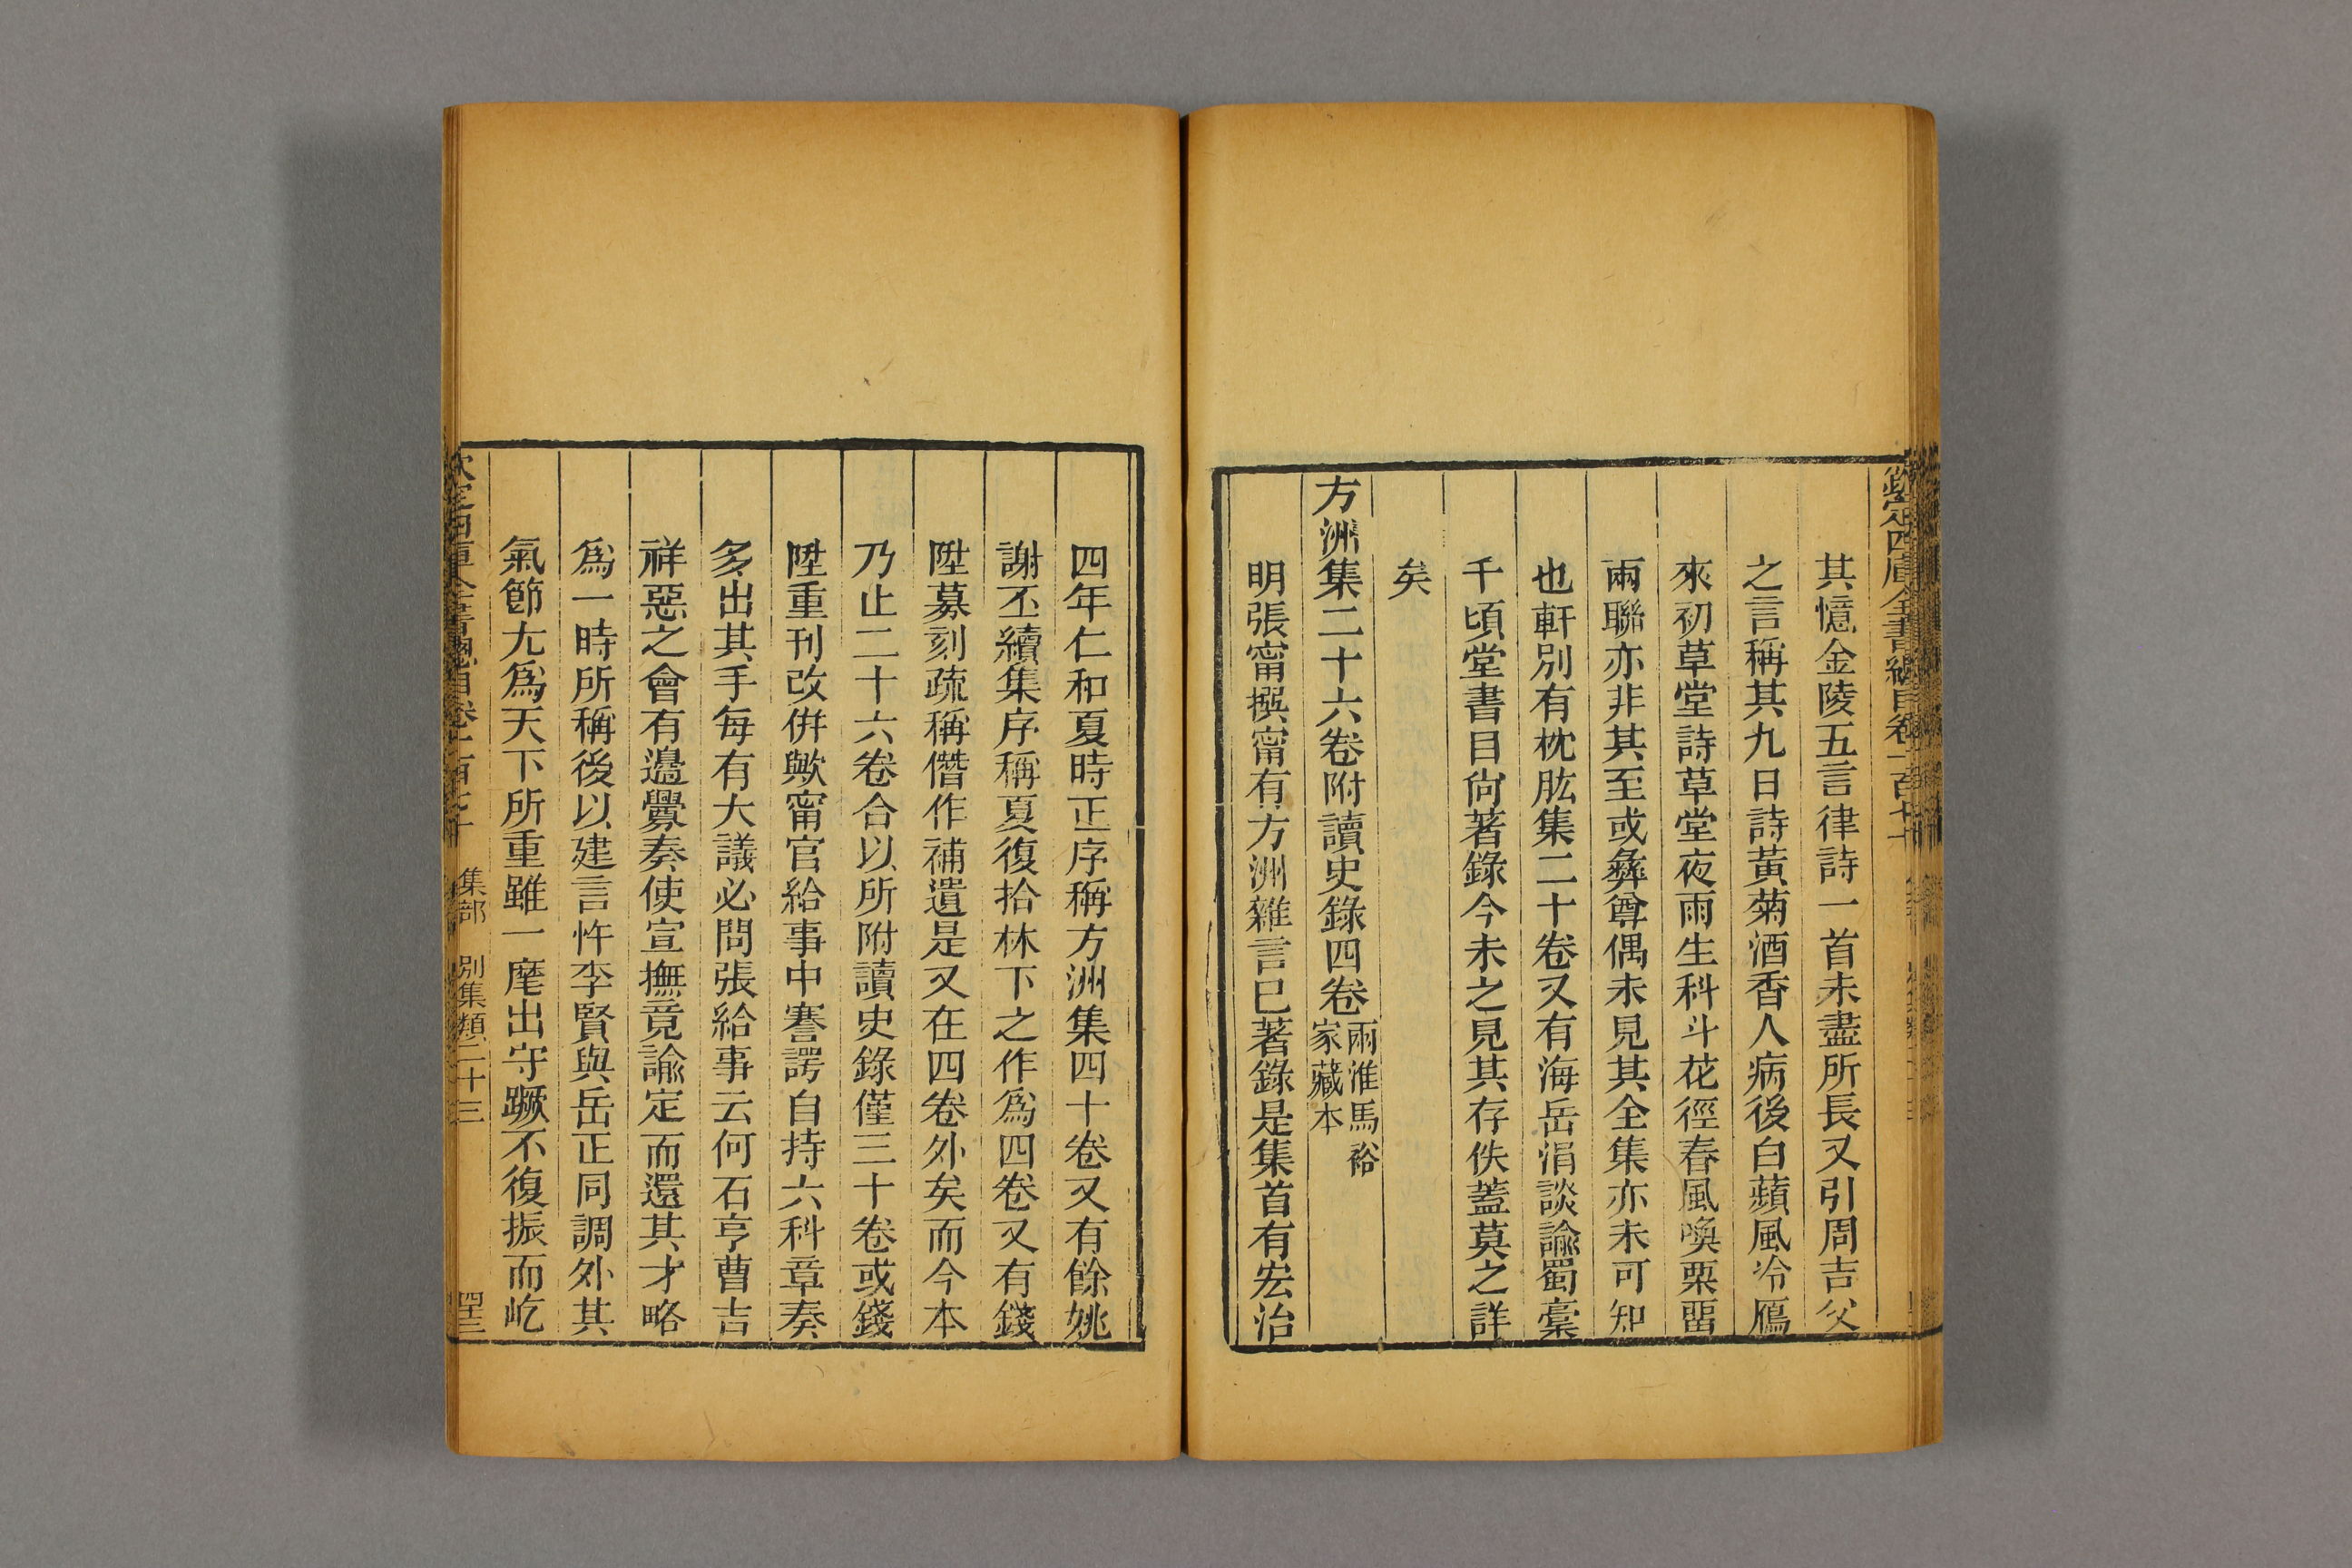 欽定四庫全書總目卷一百七十
其憶金陵五言律詩一首未盡所長又引周吉父
之言稱其九日詩黃菊酒香人病後白蘋風冷鴈
來初草堂詩草堂夜雨生科斗花徑春風喚栗畱
兩聯亦非其至或彝尊偶未見其全集亦未可知
也軒別有枕肱集二十卷又有海岳涓談諭蜀稾
千頃堂書目尙著錄今未之見其存佚蓋莫之詳
矣
方洲集二十六卷附讀史錄四卷兩淮馬裕家藏本
明張甯撰甯有方洲雜言已著錄是集首有宏治
四年仁和夏時正序稱方洲集四十卷又有餘姚
謝丕續集序稱夏復拾林下之作爲四卷又有錢
陞募刻疏稱僭作補遺是又在四卷外矣而今本
乃止二十六卷合以所附讀史錄僅三十卷或錢
陞重刊改併歟甯官給事中謇諤自持六科章奏
多出其手每有大議必問張給事云何石亨曹吉
祥惡之會有邊釁奏使宣撫竟諭定而還其才略
爲一時所稱後以建言忤李賢與岳正同調外其
氣節尤爲天下所重雖一麾出守蹶不復振而屹
欽定四庫全書總目卷一百七十 集部 別集類二十三